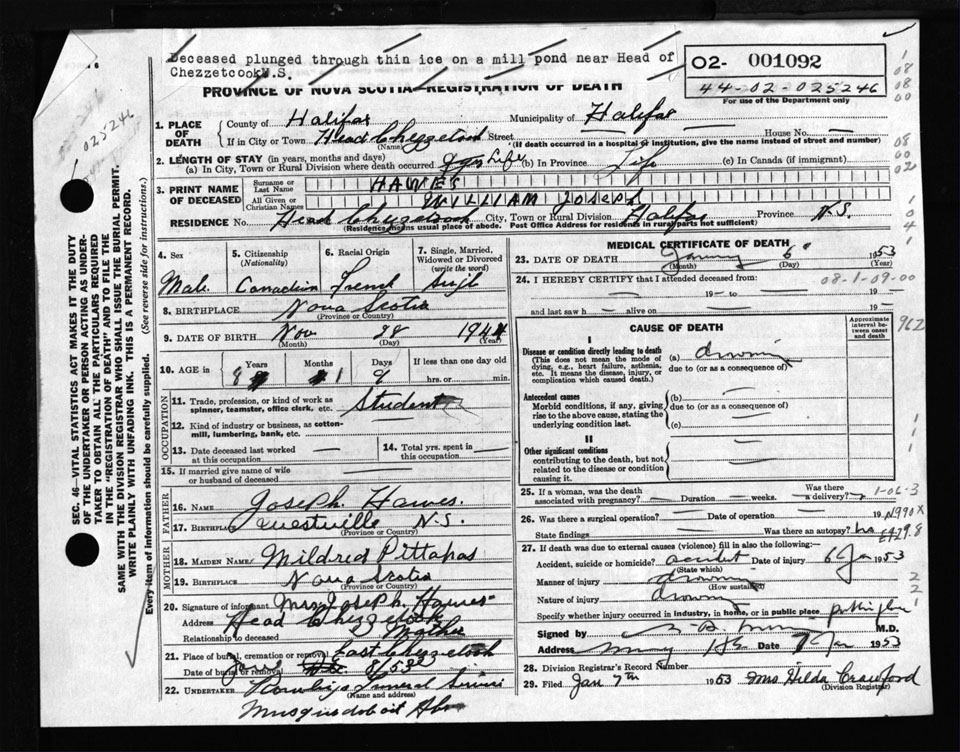 Deceased plunged through thin ice on a mill pond near Head of
Chezzetcook N.S.
PROVINCE OF NOVA SCOTIA—REGISTRATION OF DEATH
02- 001092
44-02-025246
For use of the Department only
025246
1. PLACE OF DEATH
County of Halifax Municipality of Halifax
If in City or Town Head Chezzetcook Street House No.
(Name) (If death occurred in a hospital or institution, give the name instead of street and number)
2. LENGTH OF STAY (in years, months and days)
(a) In City, Town or Rural Division where death occurred Life (b) In Province Life (c) In Canada (if immigrant)
3. PRINT NAME OF DECEASED
Surname or Last Name HAWES
All Given or Christian Names WILLIAM JOSEPH
RESIDENCE No. Head Chezzetcook City, Town or Rural Division Halifax Province N.S.
(Residence means usual place of abode. Post Office Address for residents in rural parts not sufficient)
4. Sex
Male
5. Citizenship (Nationality)
Canadian
6. Racial Origin
French
7. Single, Married, Widowed or Divorced (write the word)
Singl
8. BIRTHPLACE Nova Scotia
(Province or Country)
9. DATE OF BIRTH Nov 28 1944
(Month) (Day) (Year)
10. AGE in Years Months Days If less than one day old
8 1 9 hrs. or min.
OCCUPATION
11. Trade, profession, or kind of work as spinner, teamster, office clerk, etc. Student
12. Kind of industry or business, as cotton-mill, lumbering, bank, etc.
13. Date deceased last worked at this occupation
14. Total yrs. spent in this occupation
15. If married give name of wife or husband of deceased
FATHER
16. NAME Joseph Hawes.
17. BIRTHPLACE Westville N.S.
MOTHER
18. MAIDEN NAME Mildred Pittapas
19. BIRTHPLACE Nova Scotia
(Province or Country)
20. Signature of informant Mrs Joseph Hawes
Address Head Chezzetcook
Relationship to deceased Mother
21. Place of burial, cremation or removal East Chezzetcook
Date of burial or removal 8/53
22. UNDERTAKER Funeral Service
(Name and address)
Musquodoboit Hbr
MEDICAL CERTIFICATE OF DEATH
23. DATE OF DEATH January 6 1953
(Month) (Day) (Year)
24. I HEREBY CERTIFY that I attended deceased from: 08-1-09-00
19 to 19
and last saw h alive on 19
CAUSE OF DEATH
Approximate interval between onset and death
962
I
Disease or condition directly leading to death
(This does not mean the mode of dying, e.g., heart failure, asthenia, etc. It means the disease, injury, or complication which caused death.)
(a) drowning
due to (or as a consequence of)
Antecedent causes
Morbid conditions, if any, giving rise to the above cause, stating the underlying condition last.
(b)
due to (or as a consequence of)
(c)
II
Other significant conditions
contributing to the death, but not related to the disease or condition causing it.
25. If a woman, was the death associated with pregnancy? Duration weeks. Was there a delivery?
1-06-3
26. Was there a surgical operation? Date of operation 19
N990X
State findings Was there an autopsy? no
E9298
27. If death was due to external causes (violence) fill in also the following:—
Accident, suicide or homicide? accident Date of injury 6 Jan 1953
(State which)
Manner of injury drowning
(How sustained)
Nature of injury drowning
Specify whether injury occurred in industry, in home, or in public place public place
Signed by M.D.
Address Date 7 Jan 1953
28. Division Registrar's Record Number
29. Filed Jan 7th 1953 Mrs Hilda Crawford
(Division Registrar)
SEC. 46—VITAL STATISTICS ACT MAKES IT THE DUTY
OF THE UNDERTAKER OR PERSON ACTING AS UNDER-
TAKER TO OBTAIN ALL THE PARTICULARS REQUIRED
IN THE "REGISTRATION OF DEATH" AND TO FILE THE
SAME WITH THE DIVISION REGISTRAR WHO SHALL ISSUE THE BURIAL PERMIT.
WRITE PLAINLY WITH UNFADING INK. THIS IS A PERMANENT RECORD.
Every item of information should be carefully supplied. (See reverse side for instructions.)